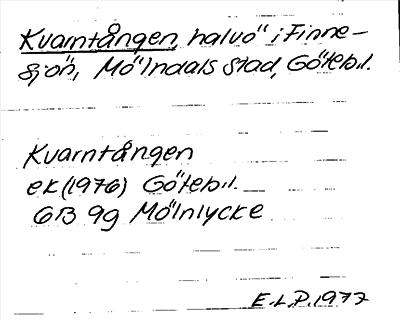 Kvarntången, halvö i Finne-
sjön, Mölndals stad, Göteb.l.
Kvarntången
ek (1976) Göteb.l.
6B 9g Mölnlycke
E.L.P. 1977